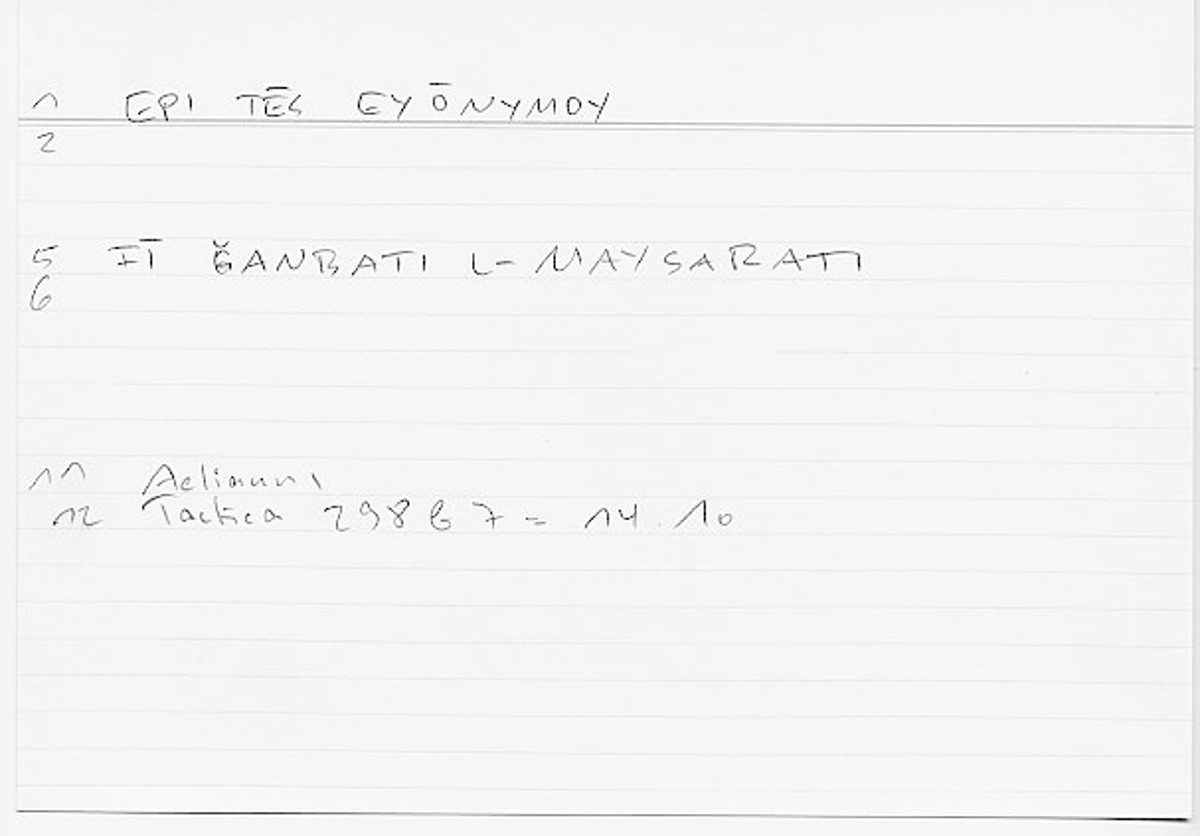 1 EPI TĒS EYŌNYMOY
2
5 FĪ ǦANBATI L-MAYSARATI
6
11 Aelianus
12 Tactica 298 b 7 = 14.10